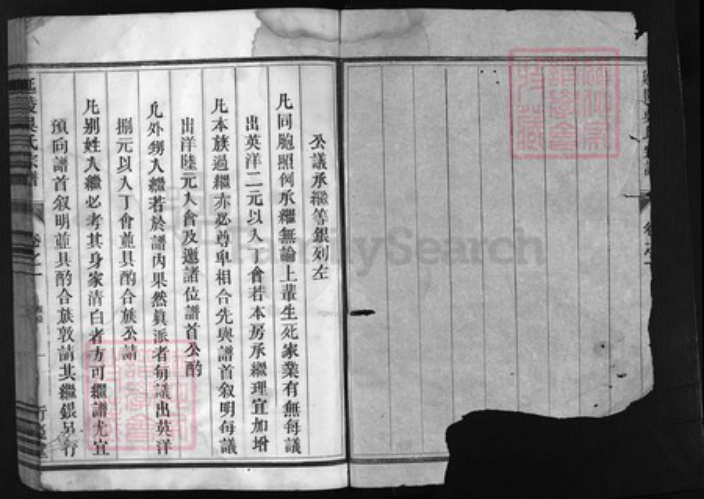 公議承繼等銀列左
凡同胞照例承繼無論上輩生死家業有無每議
出英洋二元以入丁會若本房承繼理宜加增
凡本族過繼亦必尊卑相合先與譜首叙明每議
出洋陸元入會及邀諸位譜首公酌
凡外甥入繼若於譜內果然員派者每議出英洋
捌元以入丁會蓝具酌合族公請
凡别姓入繼必考其身家清白者方可繼譜尤宜
預向譜首叙明蓝具酌合族敦請其繼銀另行
延陵吳氏宗譜
卷之一
FamilySearch